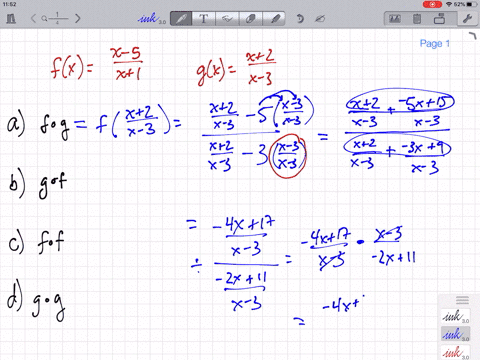 11:52
52%
ink 3.0
Page 1
f(x) = (x-5)/(x+1)    g(x) = (x+2)/(x-3)
a) f∘g = f((x+2)/(x-3)) = ((x+2)/(x-3) - 5((x-3)/(x-3)))/((x+2)/(x-3) - 3((x-3)/(x-3))) = ((x+2)/(x-3) + (-5x+15)/(x-3))/((x+2)/(x-3) + (-3x+9)/(x-3))
b) g∘f
c) f∘f
= ((-4x+17)/(x-3)) ÷ ((-2x+11)/(x-3)) = (-4x+17)/(x-3) · (x-3)/(-2x+11)
d) g∘g
= -4x+
ink 3.0
ink 3.0
ink 3.0